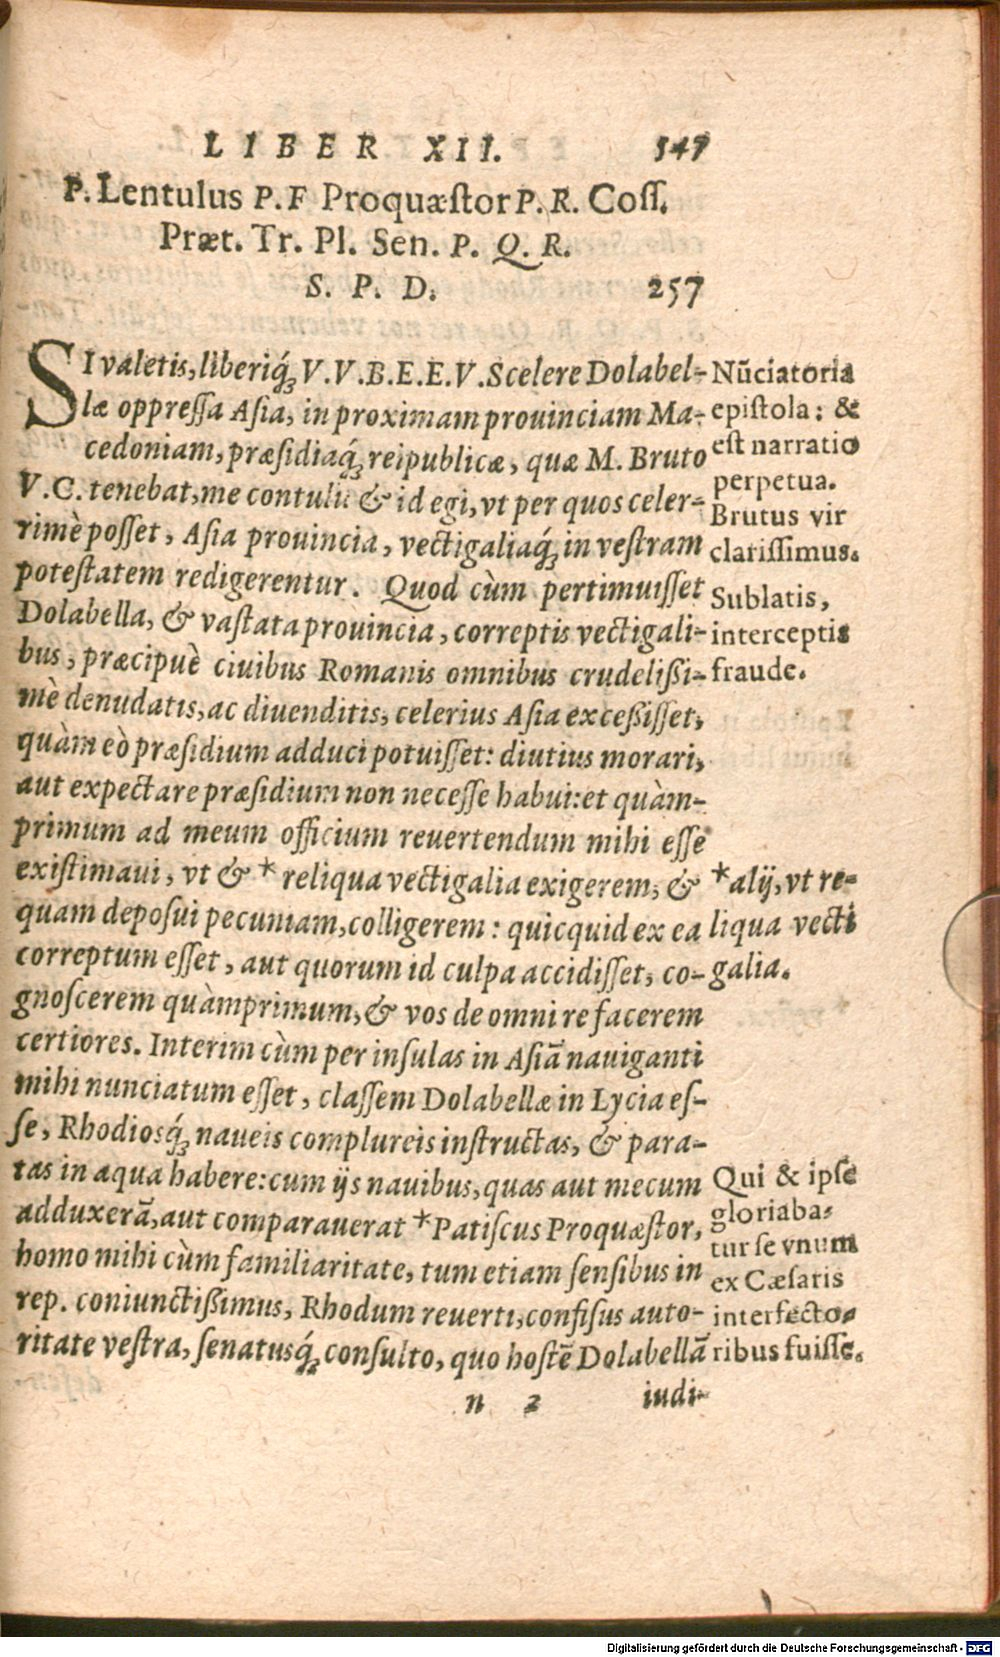 LIBER XII. 547
P. Lentulus P. F Proquæstor P. R. Coss.
Præt. Tr. Pl. Sen. P. Q. R.
S. P. D. 257
SI valetis, liberiq́; V. V. B. E. E. V. Scelere Dolabel-
læ oppressa Asia, in proximam prouinciam Ma-
cedoniam, præsidiaq́; reipublicæ, quæ M. Bruto
V. C. tenebat, me contuli: & id egi, vt per quos celer-
rimè posset, Asia prouincia, vectigaliaq́; in vestram
potestatem redigerentur. Quod cùm pertimuisset
Dolabella, & vastata prouincia, correptis vectigali-
bus, præcipuè ciuibus Romanis omnibus crudelissi-
mè denudatis, ac diuenditis, celerius Asia excessisset,
quàm eò præsidium adduci potuisset: diutius morari,
aut expectare præsidium non necesse habui: et quàm-
primum ad meum officium reuertendum mihi esse
existimaui, vt & * reliqua vectigalia exigerem, &
quam deposui pecuniam, colligerem: quicquid ex ea
correptum esset, aut quorum id culpa accidisset, co-
gnoscerem quàmprimum, & vos de omni re facerem
certiores. Interim cùm per insulas in Asiā nauiganti
mihi nunciatum esset, classem Dolabellæ in Lycia es-
se, Rhodiosq́; naueis complureis instructas, & para-
tas in aqua habere: cum ijs nauibus, quas aut mecum
adduxerā, aut comparauerat *Patiscus Proquæstor,
homo mihi cùm familiaritate, tum etiam sensibus in
rep. coniunctissimus, Rhodum reuerti, confisus auto-
ritate vestra, senatusq́; consulto, quo hostē Dolabellā
n 2 iudi-
Nūciatoria
epistola: &
est narratio
perpetua.
Brutus vir
clarissimus.
Sublatis,
interceptis
fraude.
*alij, vt re-
liqua vecti
galia.
Qui & ipse
gloriaba-
tur se vnum
ex Cæsaris
interfecto-
ribus fuisse.
Digitalisierung gefördert durch die Deutsche Forschungsgemeinschaft - DFG